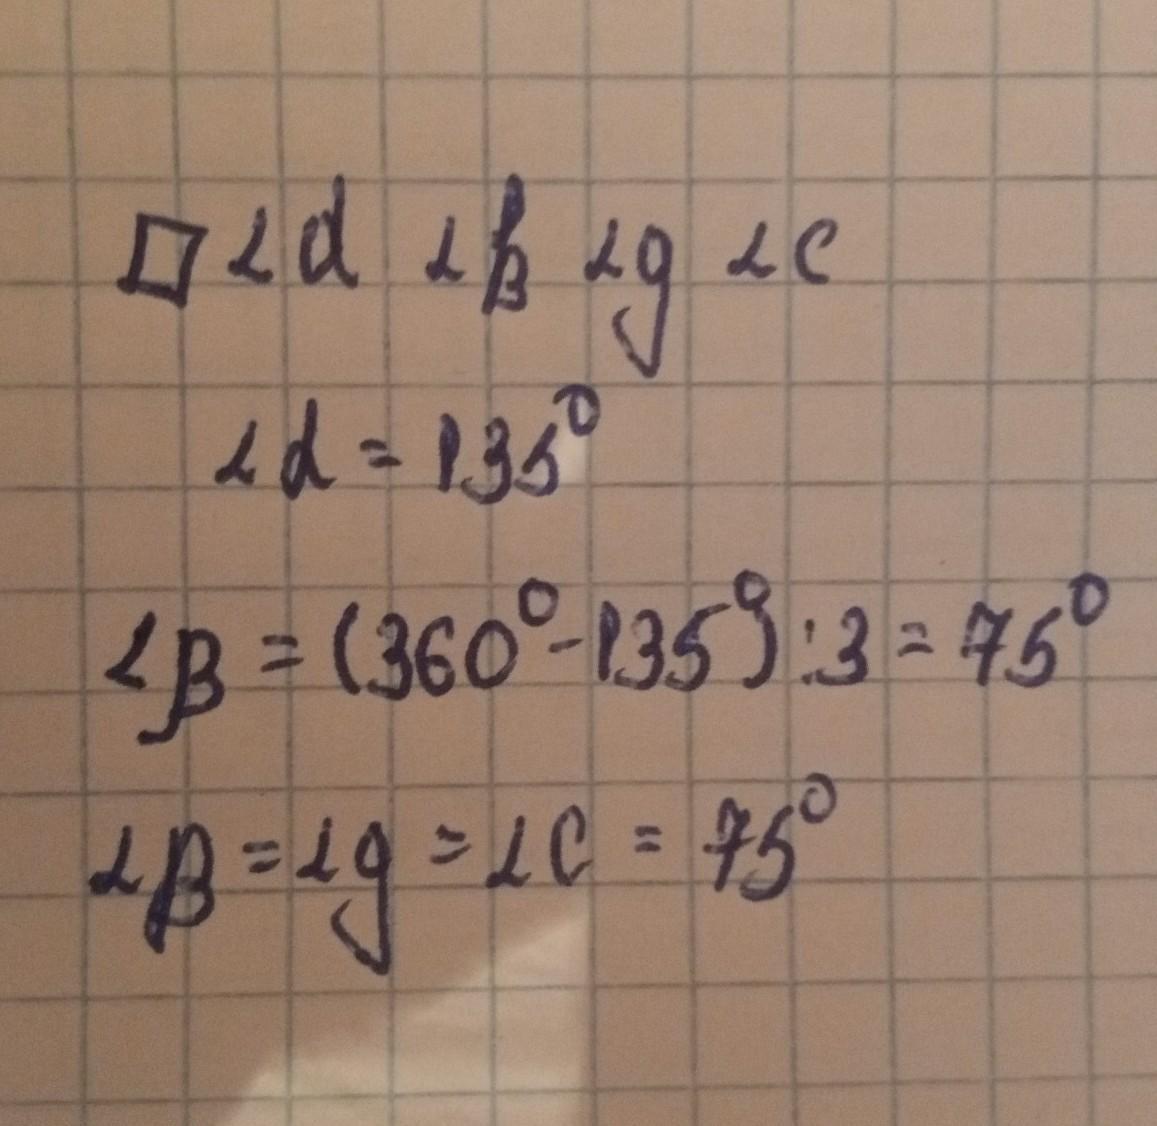 □ ∠d ∠β ∠g ∠c
∠d = 135°
∠β = (360° - 135°) : 3 = 75°
∠β = ∠g = ∠c = 75°